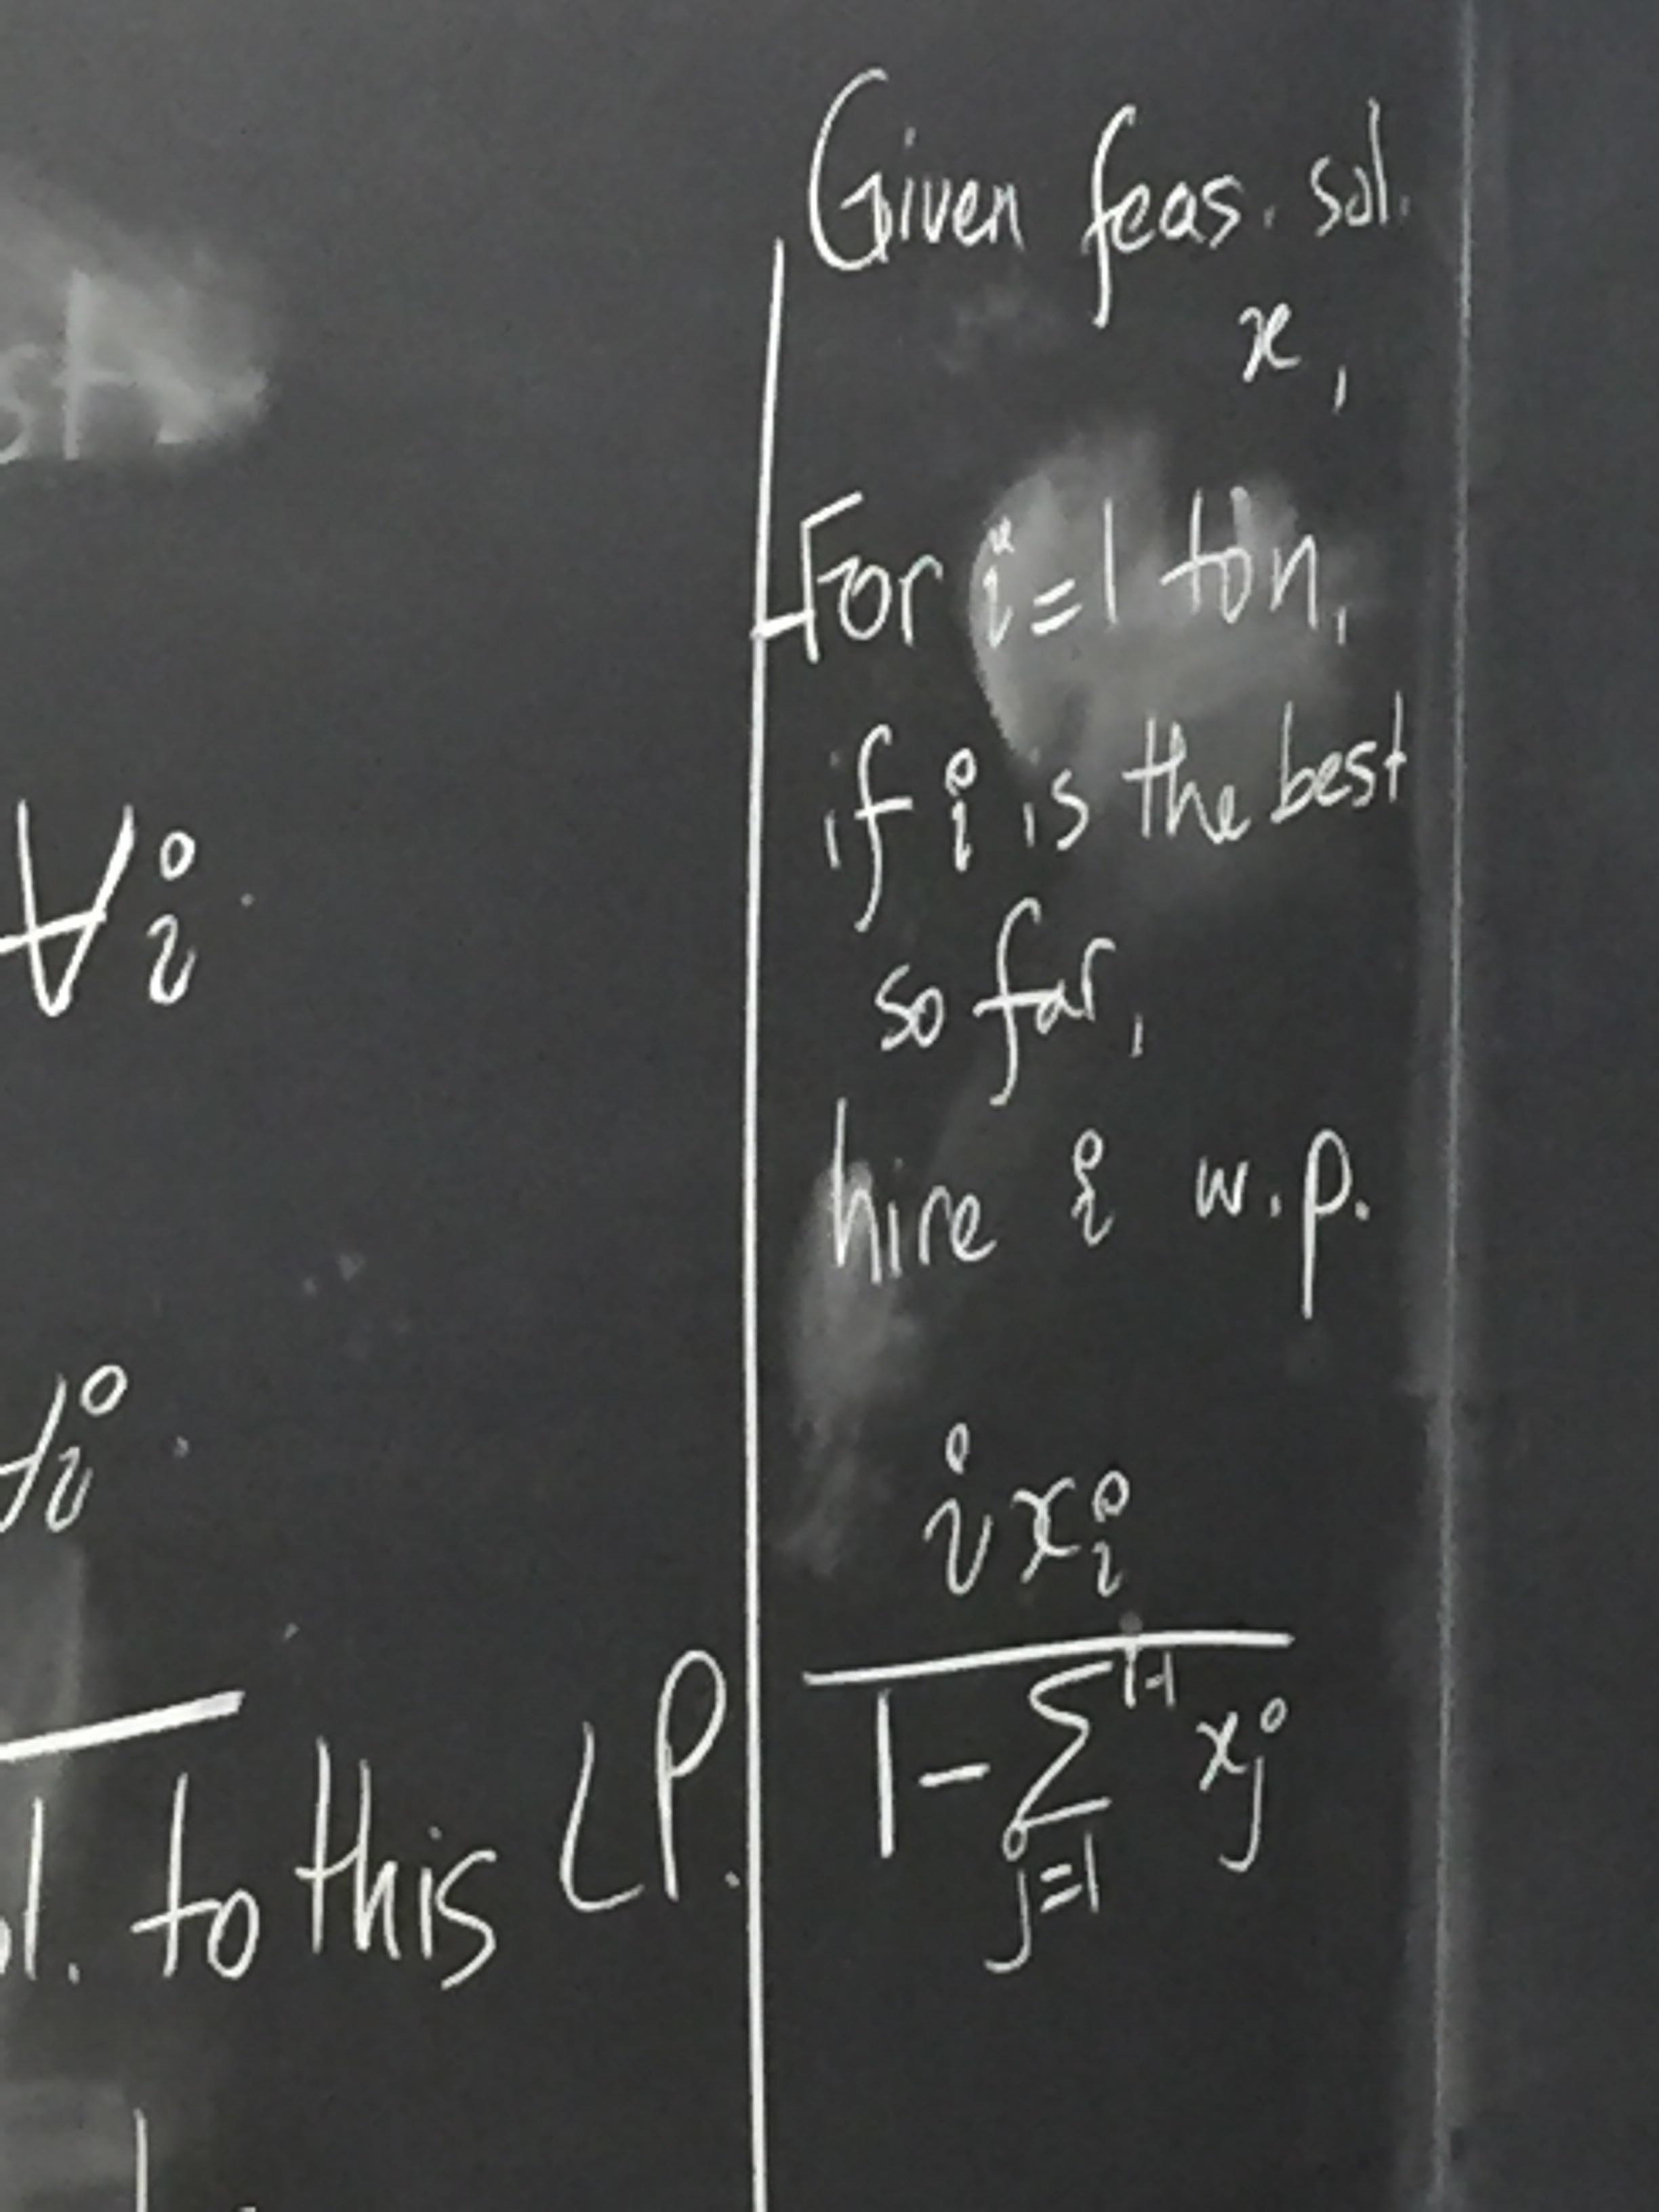 ∀i
∀i
l. to this LP.
Given feas. sol.
x,
For i=1 to n,
if i is the best
so far,
hire i w.p.
i x_i
1-∑_{j=1}^{i-1} x_j